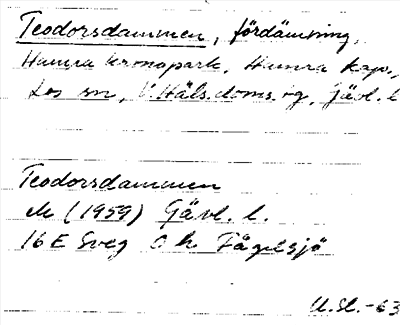 Teodorsdammen, fördämning,
Hamra kronopark, Hamra kap.,
Los sn, V. Häls. doms. tg, Gävl. l.
Teodorsdammen
M (1959) Gävl. l.
16 E Sveg S k. Fågelsjö
U.Sl.-63